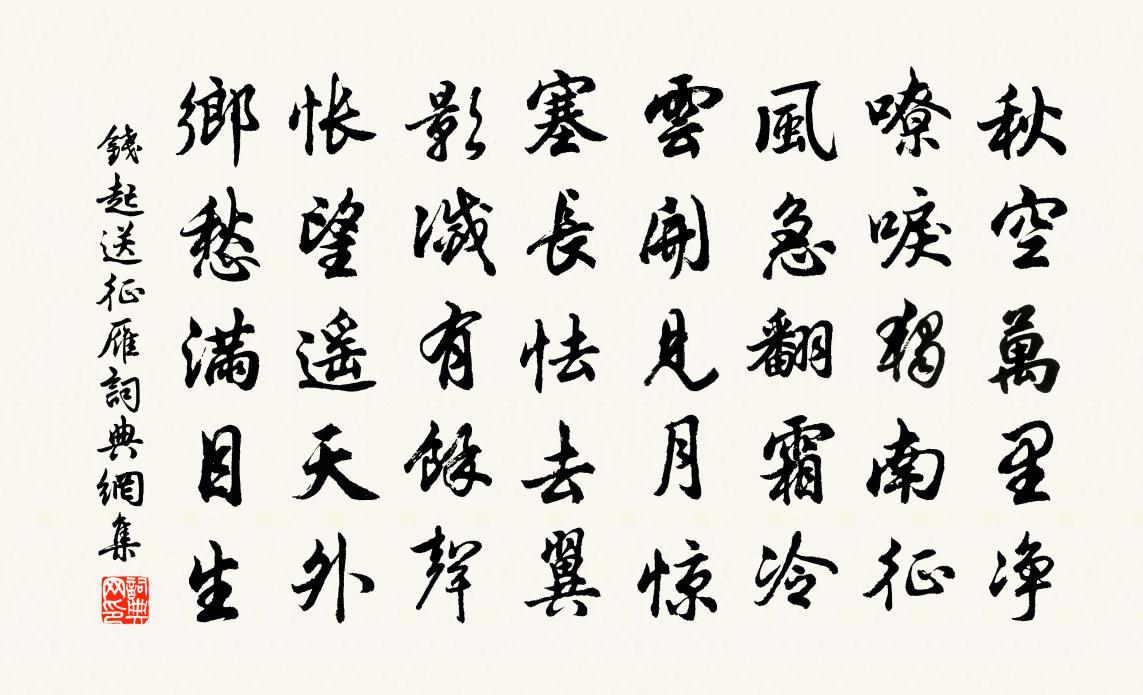 秋空萬里净
嘹唳獨南征
風急翻霜冷
雲開見月惊
塞長怯去翼
影滅有餘聲
怅望遥天外
鄉愁滿目生
錢起送征雁詞典網集
詞典
网印